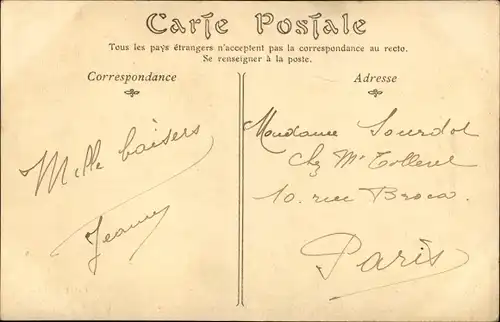 Carte Postale
Tous les pays étrangers n'acceptent pas la correspondance au recto.
Se renseigner à la poste.
Correspondance
Mille baisers
Jeanne
Adresse
Madame Sourdot
Chez Mr
10. rue Broca.
Paris